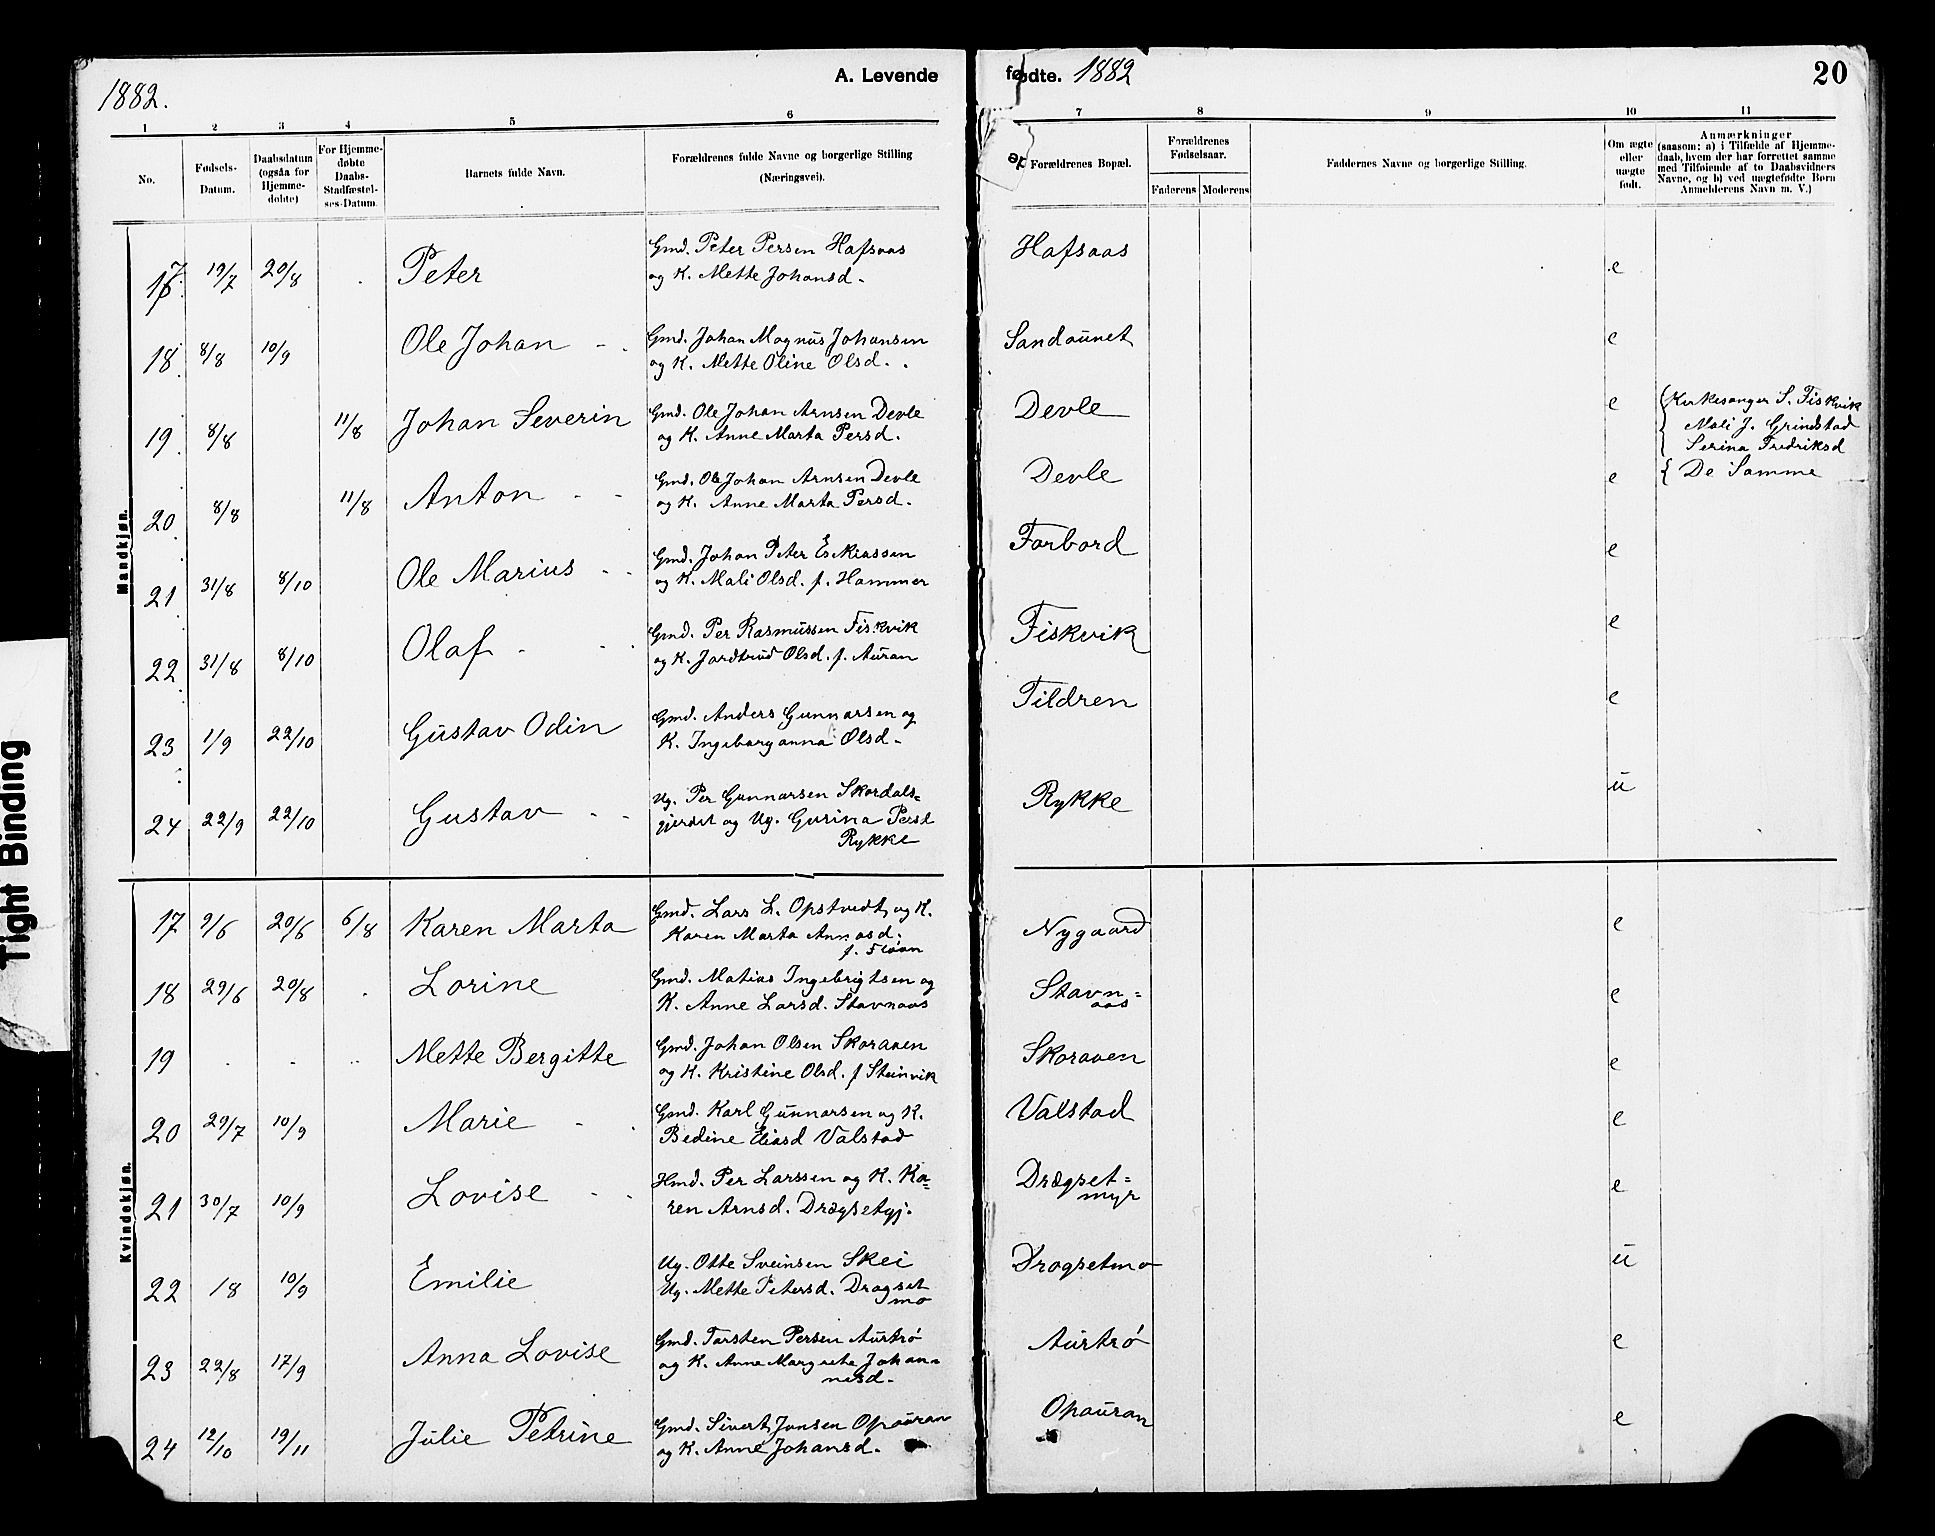 1882.
A. Levende
fødte. 1882
20
1 2 3 4 5 6 7 8 9 10 11
No.
Fødsels-Datum.
Daabsdatum (ogsaa for Hjemmedøbte)
For Hjemmedøbte Daabs-Stadfæstelses-Datum.
Barnets fulde Navn.
Forældrenes fulde Navne og borgerlige Stilling (Næringsvei).
Forældrenes Bopæl.
Forældrenes Fødselsaar.
Faderens Moderens
Faddernes Navne og borgerlige Stilling.
Om ægte eller uægte født.
Anmærkninger (saasom: a) i Tilfælde af Hjemmedaab, hvem der har forrettet samme med Tilføiende af to Daabsvidners Navne, og b) ved uægtefødte Børn Anmelderens Navn m. V.)
Mandkjøn.
17 19/7 20/8 Peter Gmd. Peter Persen Hafsaas Hafsaas e
og K. Mette Johansd.
18 8/8 10/9 Ole Johan Gmd. Johan Magnus Johansen Sandaunet e
og K. Mette Oline Olsd.
19 8/8 11/8 Johan Severin Gmd. Ole Johan Arnsen Devle Devle e Kirkesanger S. Fiskvik
og K. Anne Marta Persd. Mali J. Grindstad
Serina Fredriksd
20 8/8 11/8 Anton Gmd. Ole Johan Arnsen Devle Devle e De Samme
og K. Anne Marta Persd.
21 31/8 8/10 Ole Marius Gmd. Johan Peter Eskiassen Forbord e
og K. Mali Olsd. f. Hammer
22 31/8 8/10 Olaf Gmd. Per Rasmussen Fiskvik Fiskvik e
og K. Jardtrud Olsd. f. Auran
23 1/9 22/10 Gustav Odin Gmd. Anders Gunnarsen og Tildren e
K. Ingeborganna Olsd.
24 22/9 22/10 Gustav Ug. Per Gunnarsen Skordals= Rykke u
gjerdet og Ug. Gurina Persd
Rykke
Kvindekjøn.
17 9/6 20/6 6/8 Karen Marta Gmd. Lars L. Opstvedt, og K. Nygaard e
Karen Marta Annasd.
f. Floan
18 29/6 20/8 Lorine Gmd. Matias Ingebrigtsen og Stavn= e
K. Anne Larsd. Stavnaas aas
19 Mette Bergitte Gmd. Johan Olsen Skoraaen Skoraaen e
og K. Kristine Olsd. f Steinvik
20 29/7 10/9 Marie Gmd. Karl Gunnarsen og K. Valstad e
Bedine Eliasd Valstad
21 30/7 10/9 Lovise Hmd. Per Larssen og K. Ka= Drægset= e
ren Arnsd. Drægsetgj. myr
22 18 10/9 Emilie Ug. Otte Sveinsen Skei Drogsetmo u
Ug. Mette Petersd. Drogset
mo
23 22/8 17/9 Anna Lovise Gmd. Torsten Persen Aurtrø Aurtrø e
og K. Anne Margrete Johan=
nesd.
24 12/10 19/11 Julie Petrine Gmd. Sivert Jonsen Opauran Opauran e
og K. Anne Johansd.
Tight Binding